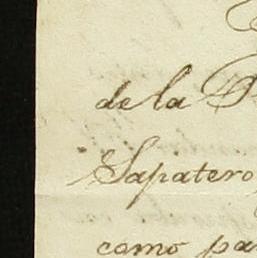 de la
Sapatero
como pa